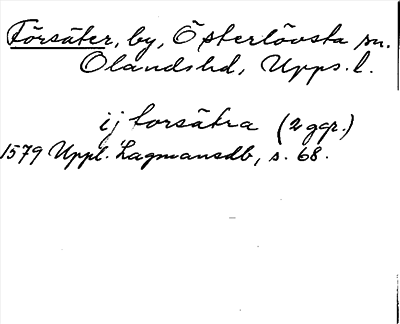 Försäter, by, Österlövsta sn.
Olandshd, Upps. l.
ij forsätra (2 ggr.)
1579 Uppl. Lagmansdb, s. 68.